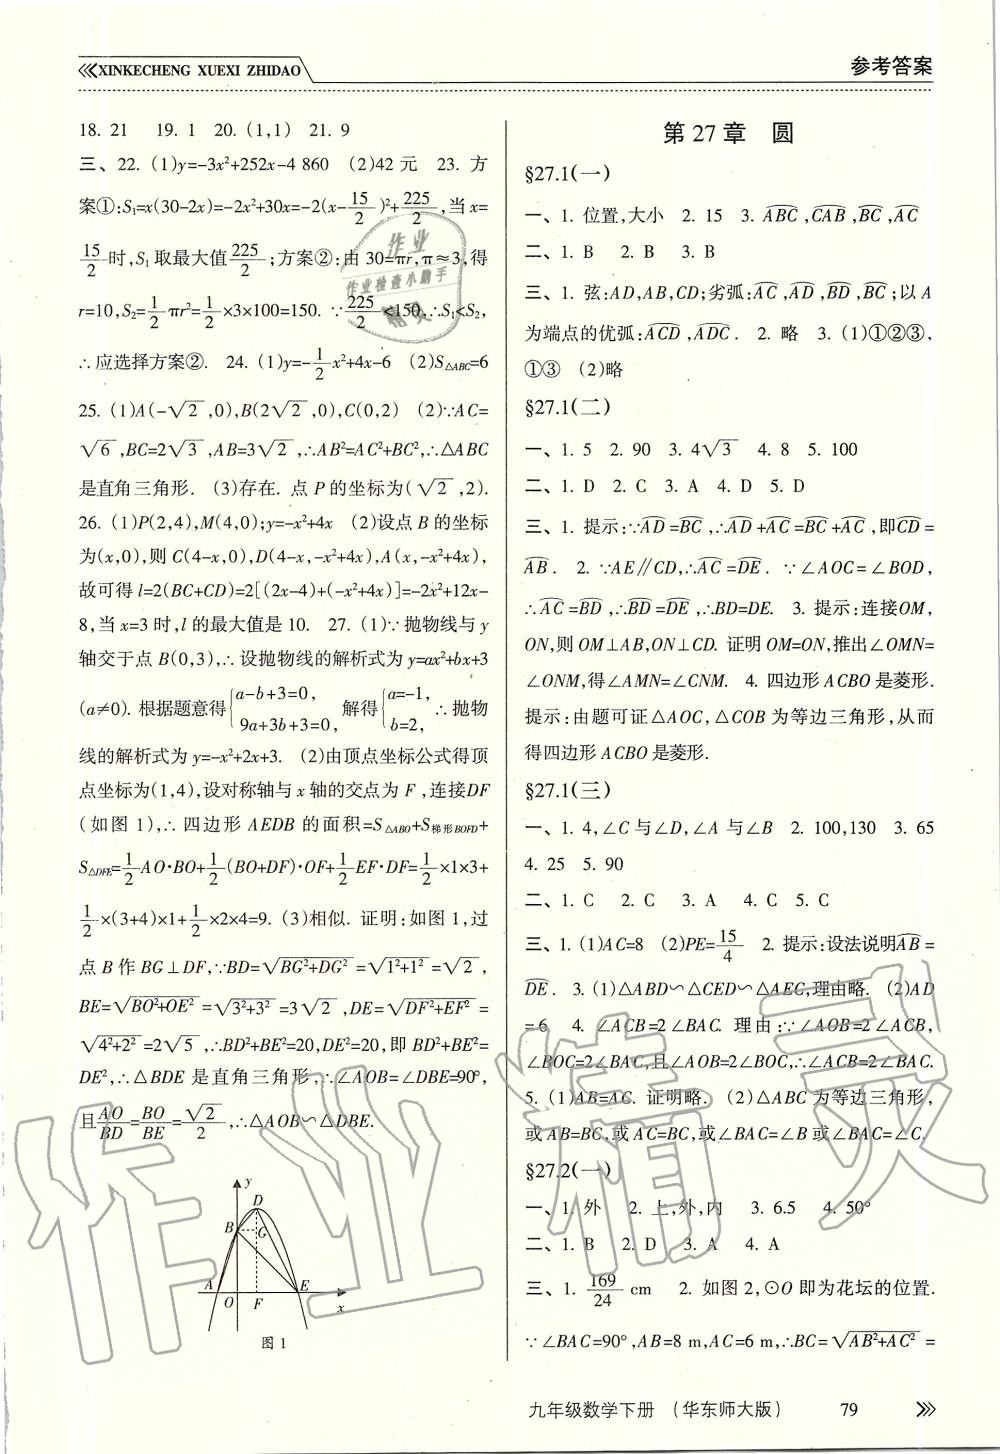 XINKECHENG XUEXI ZHIDAO
参考答案
18. 21 19. 1 20. (1,1) 21. 9
三、22. (1)y=-3x²+252x-4 860 (2)42 元 23. 方
案①:S₁=x(30-2x)=-2x²+30x=-2(x-15/2)²+225/2,当 x=
15/2时,S₁取最大值225/2;方案②:由 30=πr,π≈3,得
r=10,S₂=1/2πr²=1/2×3×100=150. ∵225/2<150,∴S₁<S₂,
∴应选择方案②. 24. (1)y=-1/2x²+4x-6 (2)S△ABC=6
25. (1)A(-√2,0),B(2√2,0),C(0,2) (2)∵AC=
√6,BC=2√3,AB=3√2,∴AB²=AC²+BC²,∴△ABC
是直角三角形. (3)存在. 点 P 的坐标为(√2,2).
26. (1)P(2,4),M(4,0);y=-x²+4x (2)设点 B 的坐标
为(x,0),则 C(4-x,0),D(4-x,-x²+4x),A(x,-x²+4x),
故可得 l=2(BC+CD)=2[(2x-4)+(-x²+4x)]=-2x²+12x-
8,当 x=3 时,l 的最大值是 10. 27. (1)∵抛物线与 y
轴交于点 B(0,3),∴设抛物线的解析式为 y=ax²+bx+3
(a≠0). 根据题意得{a-b+3=0, 9a+3b+3=0, 解得{a=-1, b=2, ∴抛物
线的解析式为 y=-x²+2x+3. (2)由顶点坐标公式得顶
点坐标为(1,4),设对称轴与 x 轴的交点为 F,连接DF
(如图 1),∴四边形 AEDB 的面积=S△ABO+S梯形BOFD+
S△DFE=1/2AO·BO+1/2(BO+DF)·OF+1/2EF·DF=1/2×1×3+
1/2×(3+4)×1+1/2×2×4=9. (3)相似. 证明:如图 1,过
点 B 作 BG⊥DF,∵BD=√BG²+DG²=√1²+1²=√2,
BE=√BO²+OE²=√3²+3²=3√2,DE=√DF²+EF²=
√4²+2²=2√5,∴BD²+BE²=20,DE²=20,即 BD²+BE²=
DE²,∴△BDE 是直角三角形,∴∠AOB=∠DBE=90°,
且AO/BD=BO/BE=√2/2,∴△AOB∽△DBE.
y
D
B
G
A
O
F
E
x
图 1
第 27 章 圆
§27.1(一)
一、1. 位置,大小 2. 15 3. ⌒ABC,⌒CAB,⌒BC,⌒AC
二、1. B 2. B 3. B
三、1. 弦:AD,AB,CD;劣弧:⌒AC,⌒AD,⌒BD,⌒BC;以 A
为端点的优弧:⌒ACD,⌒ADC. 2. 略 3. (1)①②③,
①③ (2)略
§27.1(二)
一、1. 5 2. 90 3. 4√3 4. 8 5. 100
二、1. D 2. C 3. A 4. D 5. D
三、1. 提示:∵⌒AD=⌒BC,∴⌒AD+⌒AC=⌒BC+⌒AC,即⌒CD=
⌒AB. 2. ∵AE∥CD,∴⌒AC=⌒DE. ∵∠AOC=∠BOD,
∴⌒AC=⌒BD,∴⌒BD=⌒DE,∴BD=DE. 3. 提示:连接OM,
ON,则 OM⊥AB,ON⊥CD. 证明 OM=ON,推出∠OMN=
∠ONM,得∠AMN=∠CNM. 4. 四边形 ACBO 是菱形.
提示:由题可证△AOC,△COB 为等边三角形,从而
得四边形 ACBO 是菱形.
§27.1(三)
一、1. 4,∠C 与∠D,∠A 与∠B 2. 100,130 3. 65
4. 25 5. 90
二、1. C 2. C 3. A 4. C 5. C
三、1. (1)AC=8 (2)PE=15/4 2. 提示:设法说明⌒AB=
⌒DE. 3. (1)△ABD∽△CED∽△AEC,理由略. (2)AD
=6 4. ∠ACB=2∠BAC. 理由:∵∠AOB=2∠ACB,
∠BOC=2∠BAC,且∠AOB=2∠BOC,∴∠ACB=2∠BAC.
5. (1)AB=AC. 证明略. (2)△ABC 为等边三角形,
或 AB=BC,或 AC=BC,或∠BAC=∠B 或∠BAC=∠C.
§27.2(一)
一、1. 外 2. 上,外,内 3. 6.5 4. 50°
二、1. B 2. D 3. A 4. A
三、1. 169/24 cm 2. 如图 2,⊙O 即为花坛的位置.
∵∠BAC=90°,AB=8 m,AC=6 m,∴BC=√AB²+AC²=
九年级数学下册 (华东师大版) 79
作业
作业检查小助手
精灵
作业精灵